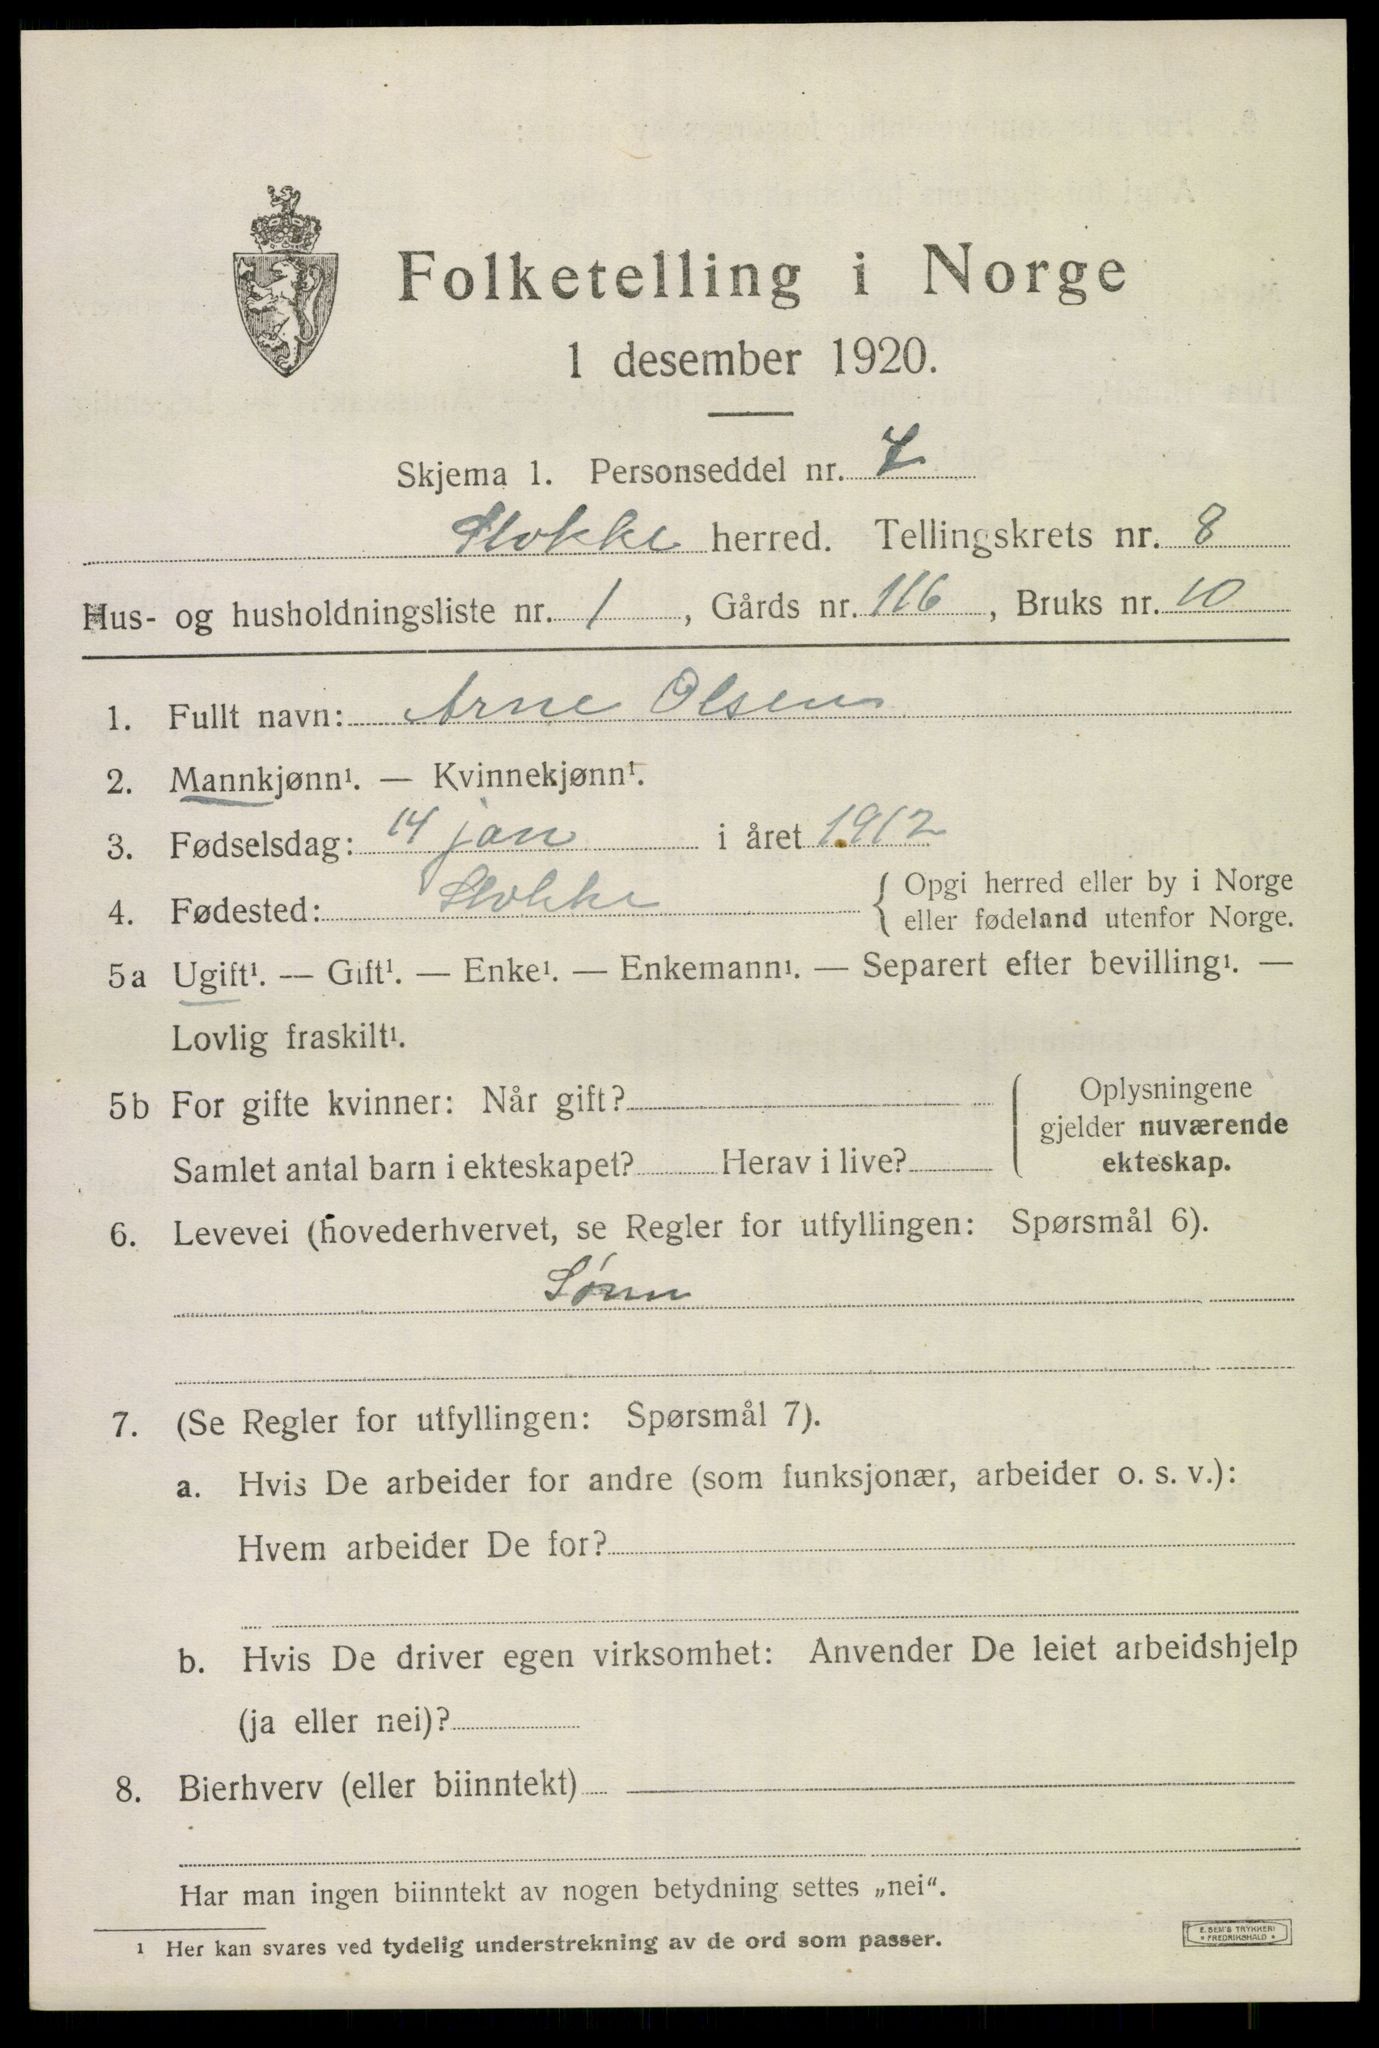 Folketelling i Norge
1 desember 1920.
Skjema 1. Personseddel nr. 7
Stokke herred. Tellingskrets nr. 8
Hus- og husholdningsliste nr. 1, Gårds nr. 116, Bruks nr. 10
1. Fullt navn: Arne Olsen
2. Mannkjønn¹. — Kvinnekjønn¹.
3. Fødselsdag: 14 jan i året 1912
4. Fødested: Stokke { Opgi herred eller by i Norge
eller fødeland utenfor Norge.
5a Ugift¹. — Gift¹. — Enke¹. — Enkemann¹. — Separert efter bevilling¹. —
Lovlig fraskilt¹.
5b For gifte kvinner: Når gift?
Samlet antal barn i ekteskapet? Herav i live?
Oplysningene
gjelder nuværende
ekteskap.
6. Levevei (hovederhvervet, se Regler for utfyllingen: Spørsmål 6).
Sønn
7. (Se Regler for utfyllingen: Spørsmål 7).
a. Hvis De arbeider for andre (som funksjonær, arbeider o. s. v.):
Hvem arbeider De for?
b. Hvis De driver egen virksomhet: Anvender De leiet arbeidshjelp
(ja eller nei)?
8. Bierhverv (eller biinntekt)
Har man ingen biinntekt av nogen betydning settes „nei“.
¹ Her kan svares ved tydelig understrekning av de ord som passer.
E. SEM'S TRYKKERI
* FREDRIKSHALD *